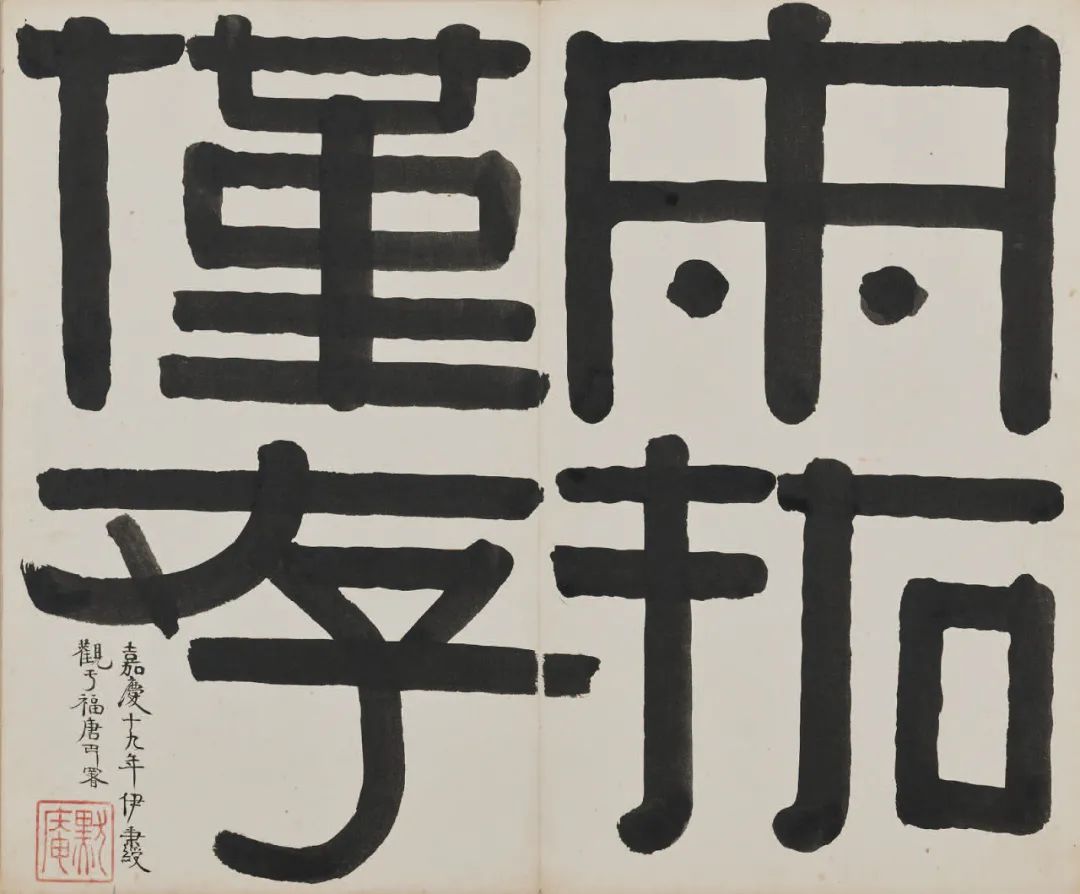 宋拓
僅存
嘉慶十九年伊秉綬
觀于福唐署
默庵